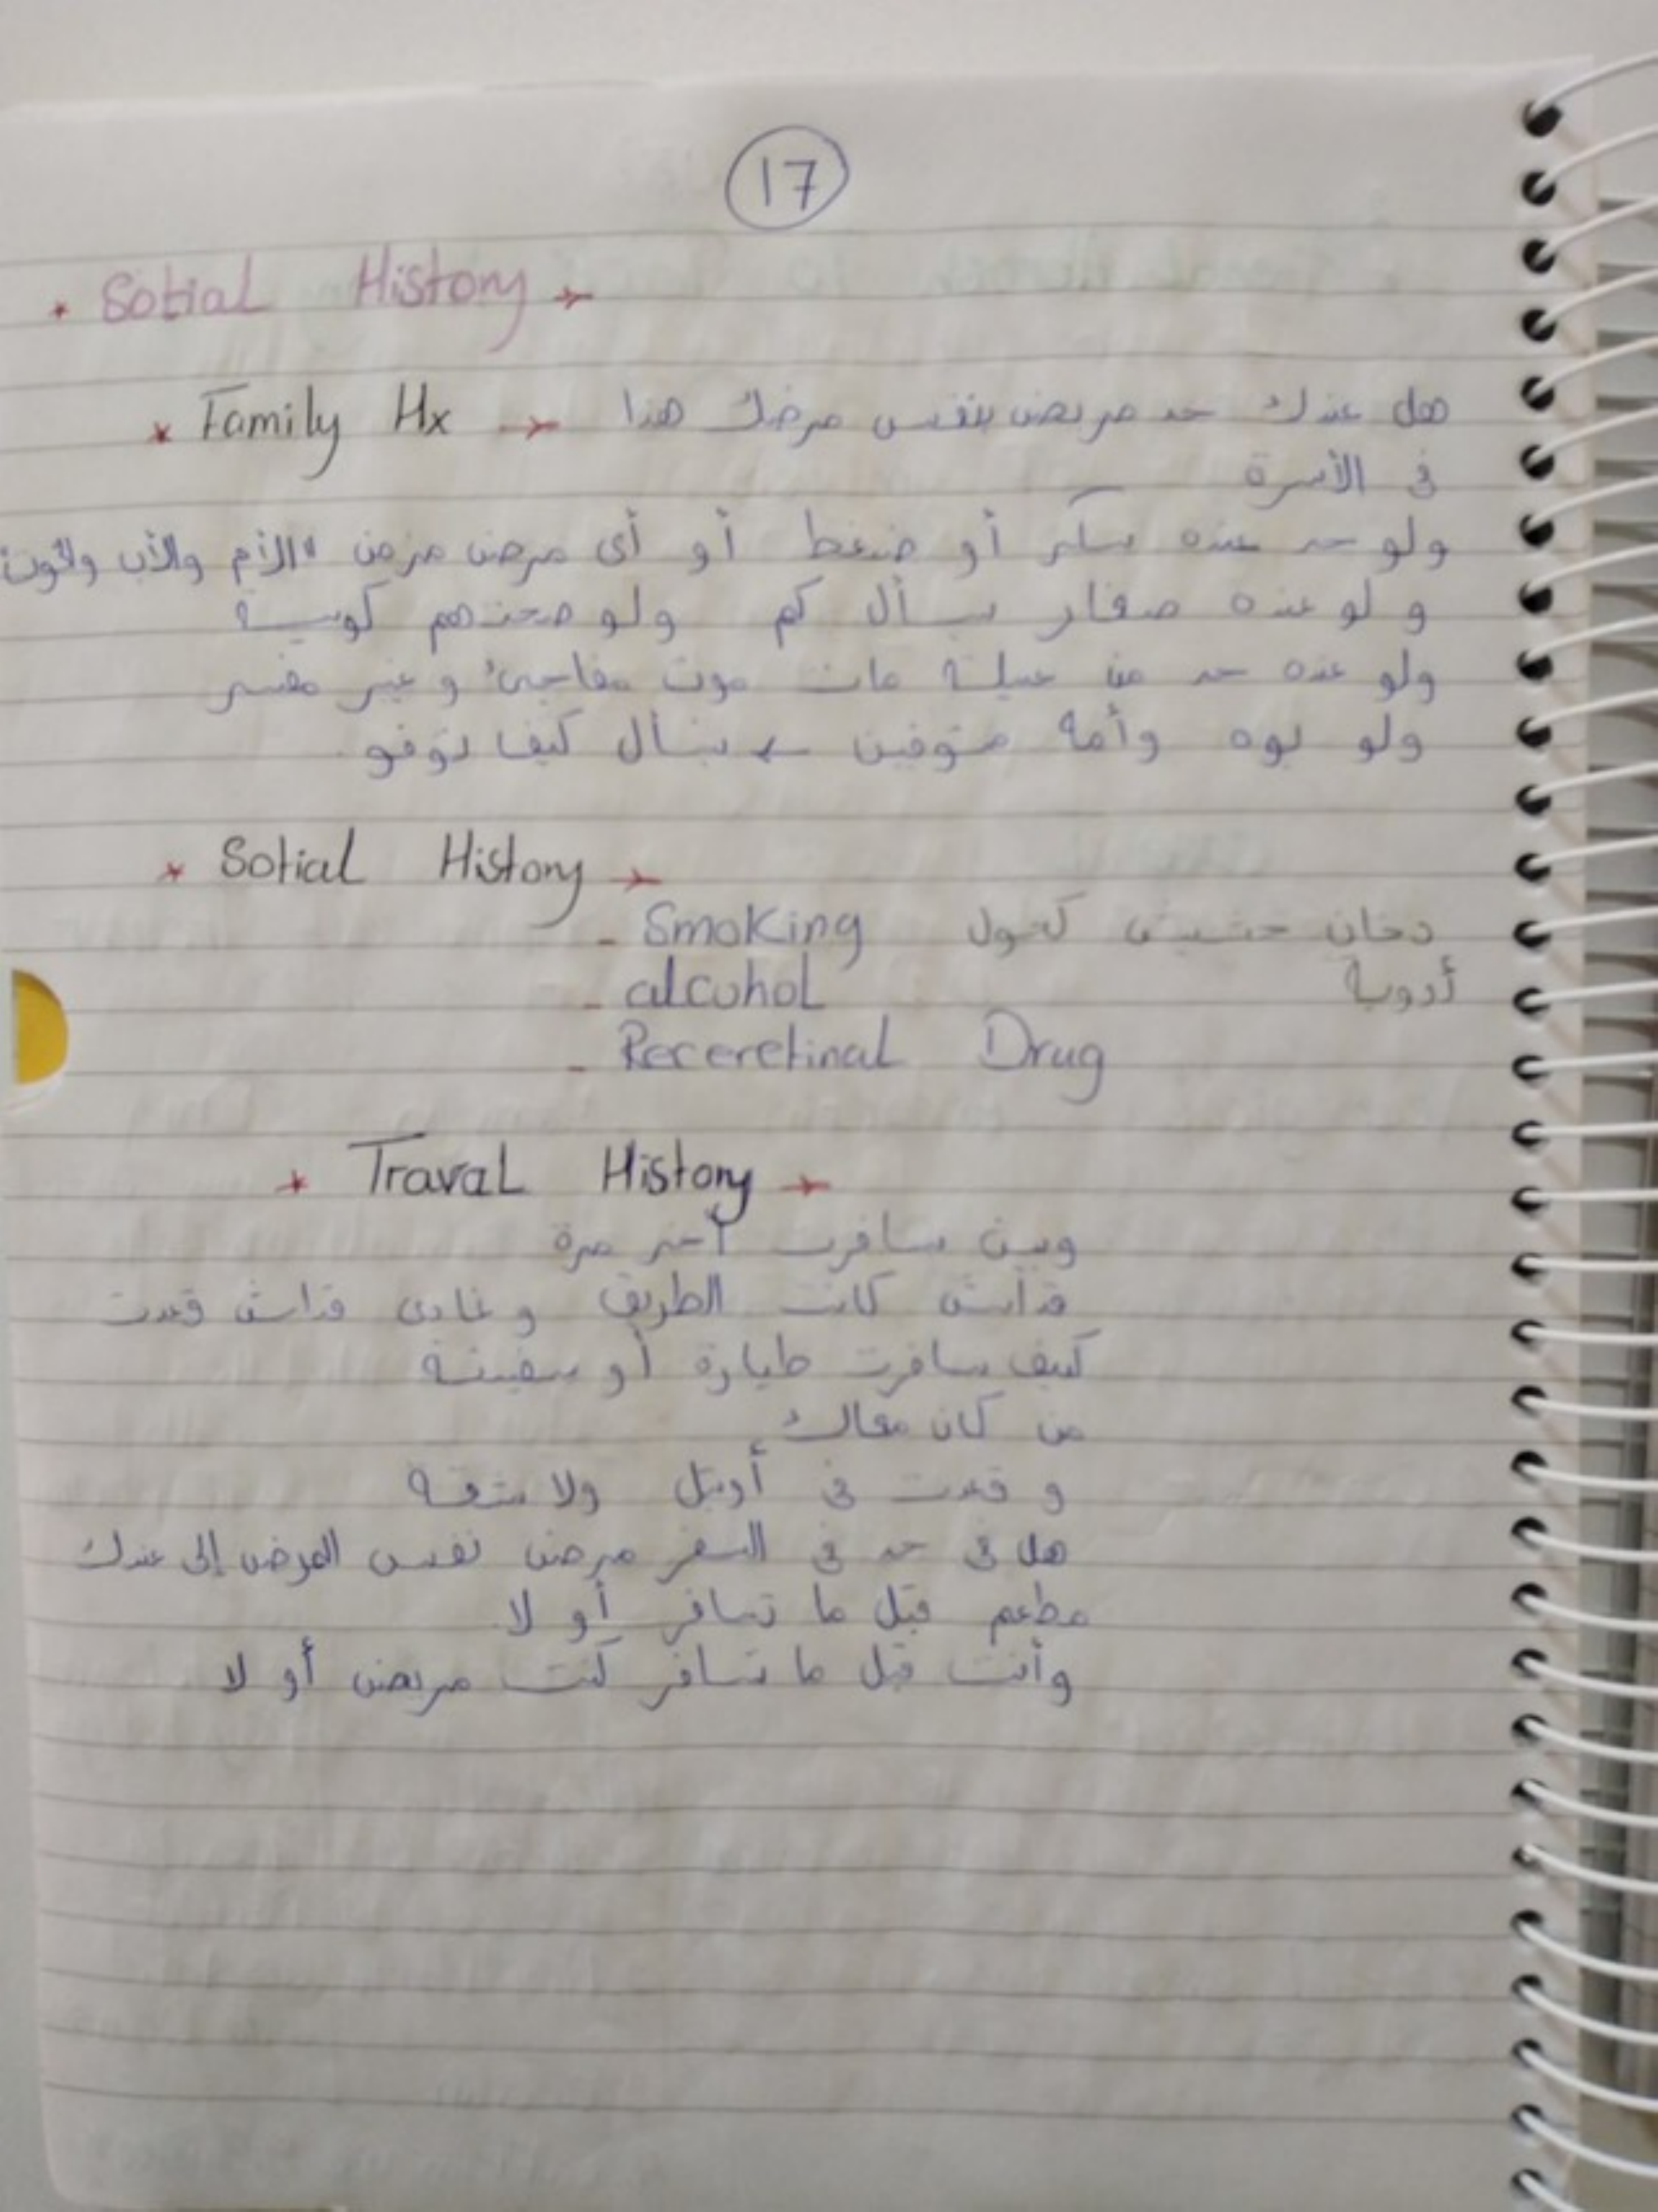 17
* Sotial History →
* Family Hx → هل عندك حد مريض بنفس مرضك هذا
في الأسرة
ولو حد عنده سكر أو ضغط أو أى مرض مزمن "الأم والأب والخوت"
و لو عنده صغار يسأل كم ولو صحتهم كويسة
ولو عنده حد من عيلة مات موت مفاجئ و غير مفسر
ولو بوه وأمه متوفين ← يسأل كيف توفو
* Sotial History →
- Smoking دخان حشيش كحول
- alcohol أدوية
- Receretinal Drug
* Traval History →
وين سافرت آخر مرة
قداش كانت الطريق و غادى قداش قعدت
كيف سافرت طيارة أو سفينة
من كان معاك
و قعدت في أوتيل ولا شقة
هل في حد في السفر مرض نفس المرض إلى عندك
مطعم قبل ما تسافر أو لا
وأنت قبل ما تسافر كنت مريض أو لا